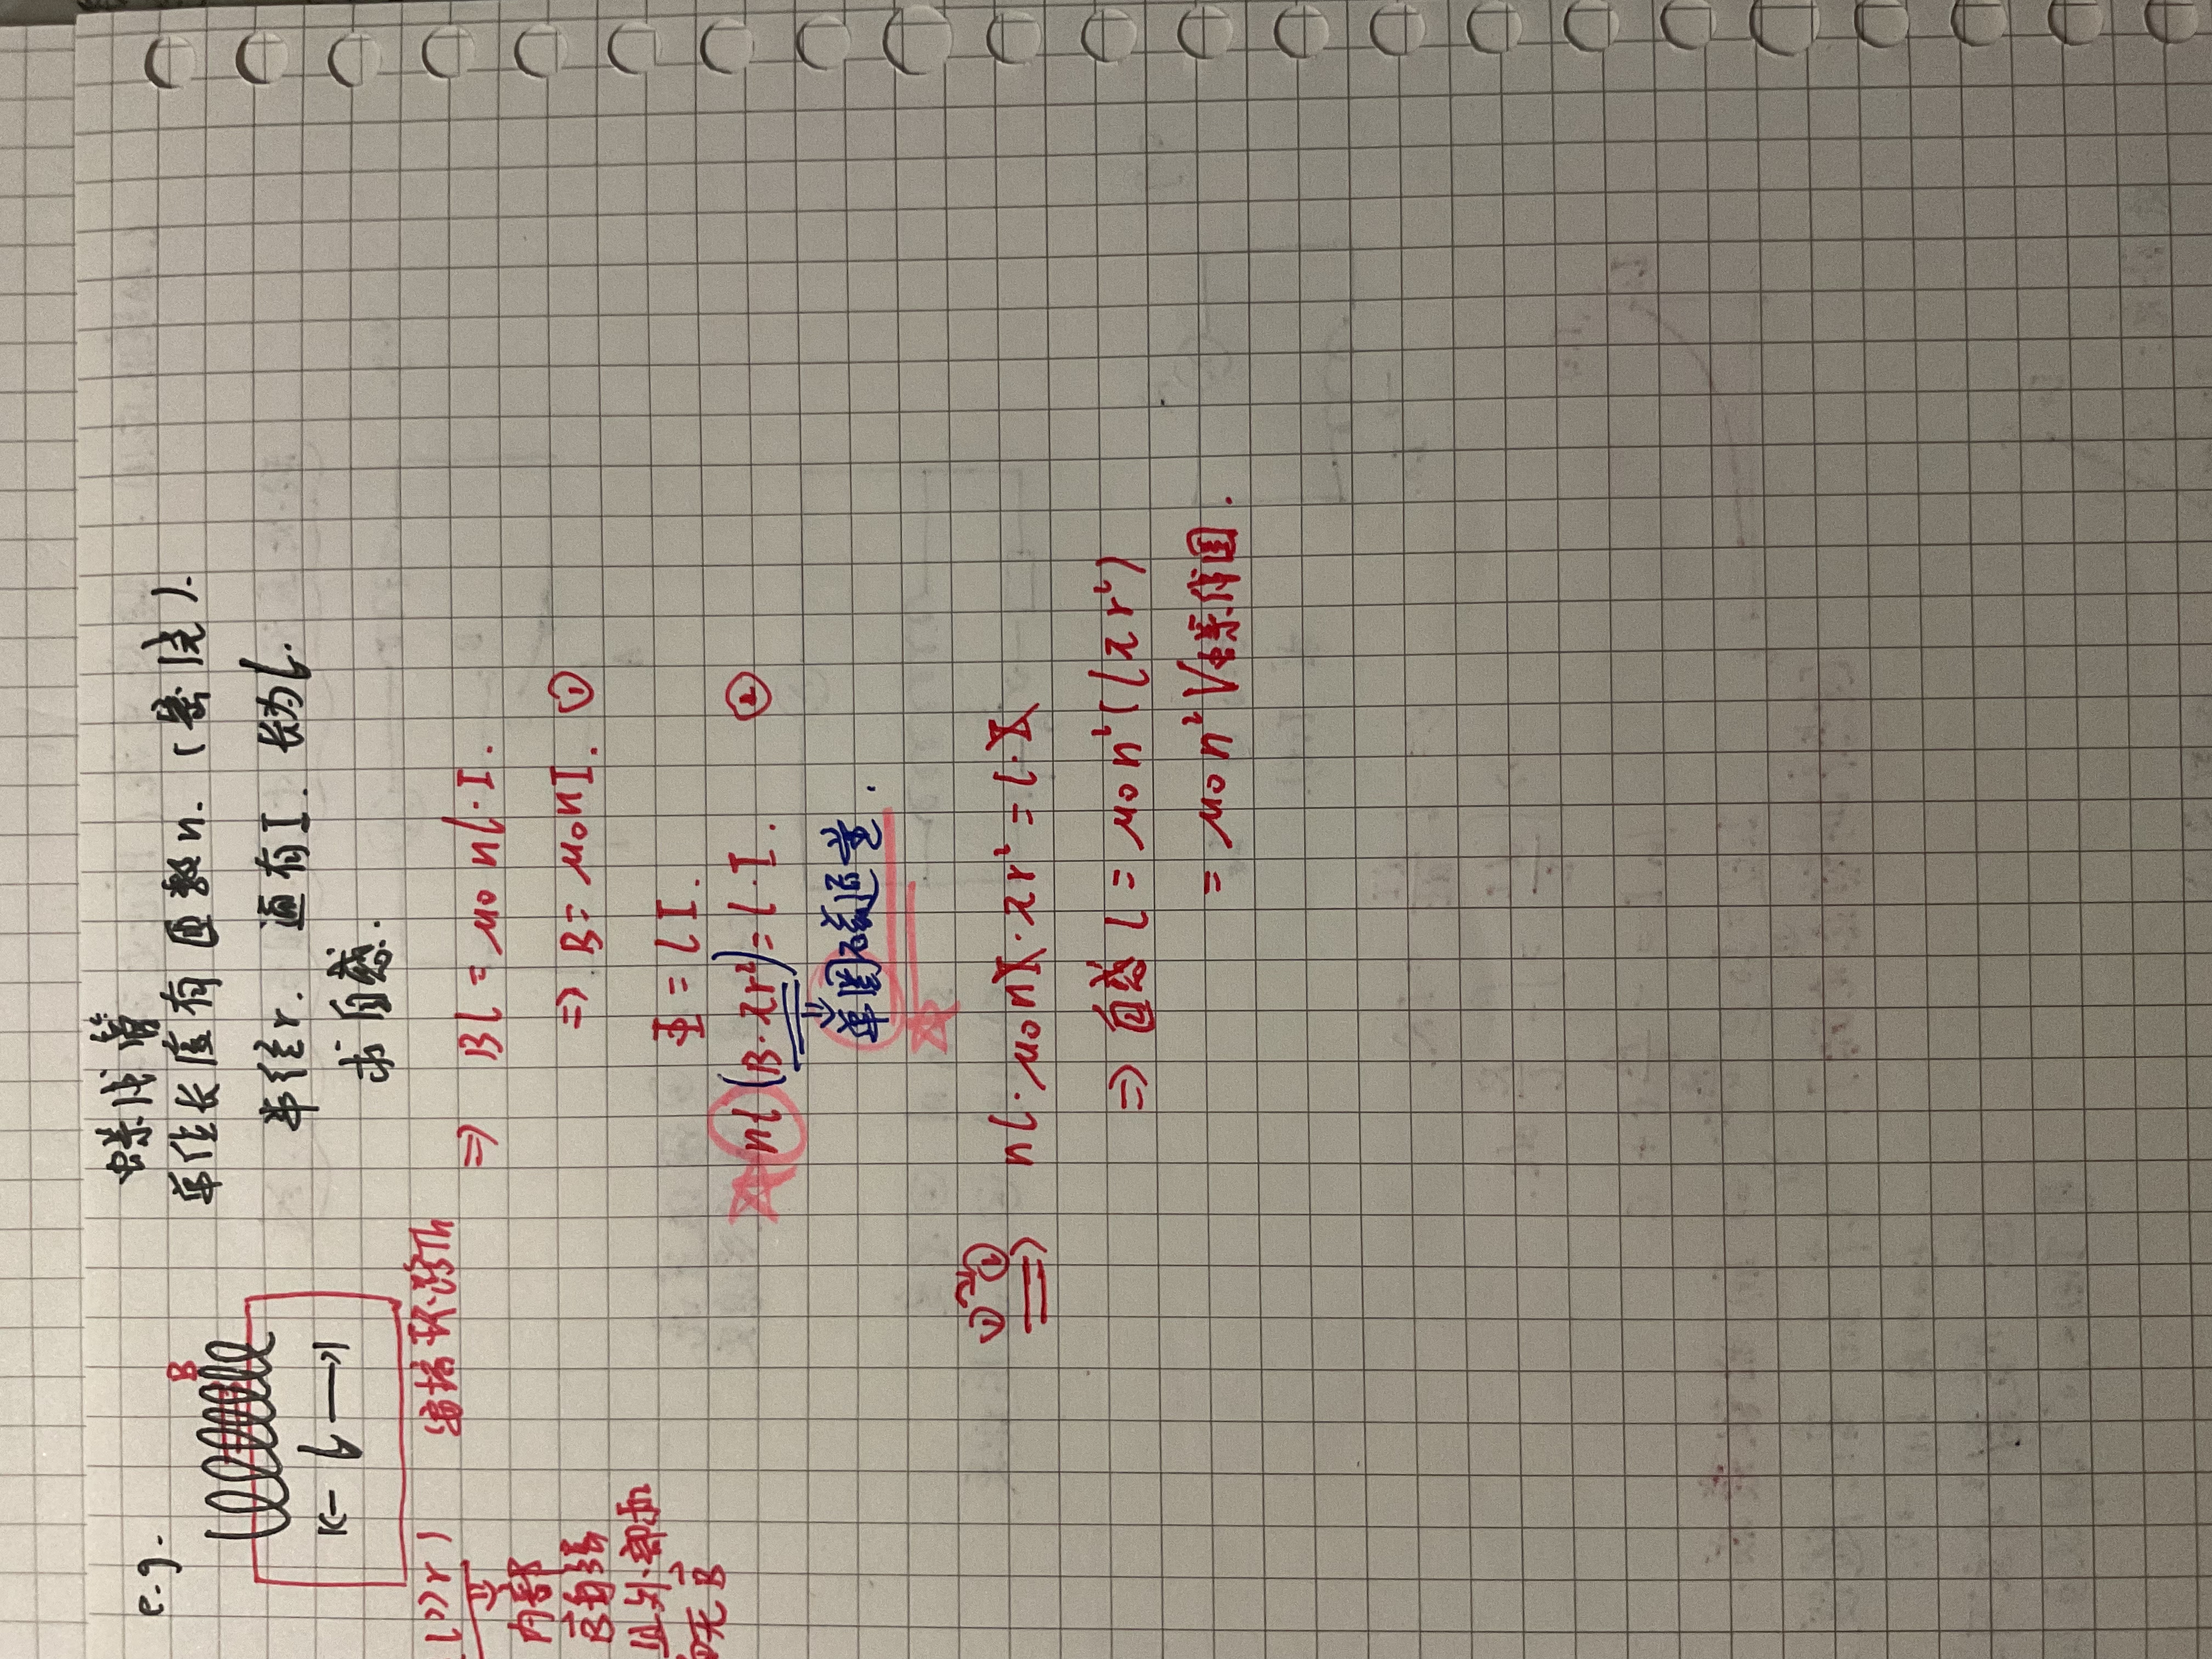 e.g.
螺线管
单位长度有匝数n.(密绕).
半径r. 通有I. 长为l.
求自感.
B
l
(l>>r)
⇓
内部
B均匀
且外部
无B
安培环路Th
⇒ Bl = μ0 nl·I.
⇒ B = μ0nI. ①
Φ = LI.
nl(B·πr²) = L·I. ②
⇓
单圈磁通量.
①→②
⇒ nl·μ0nI·πr² = L·I
⇒ 自感 L = μ0n²(lπr²)
= μ0n²V螺线管.